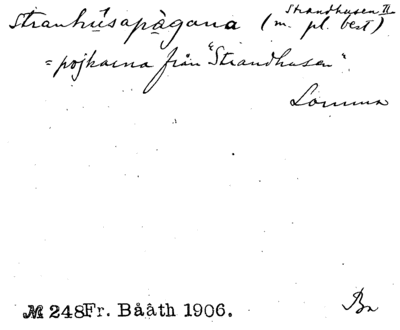 Strandhusen II
Stranhúsapàgana (m. pl. best)
= pojkarna från "Strandhusen".
Lomma
M 248 Fr. Bååth 1906.